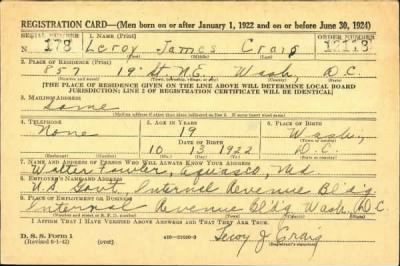 REGISTRATION CARD—(Men born on or after January 1, 1922 and on or before June 30, 1924)
SERIAL NUMBER 1. NAME (Print) ORDER NUMBER
N 178 Leroy James Craig 12113
2. PLACE OF RESIDENCE (Print)
857 19th St. N.E. Wash, D.C.
(Number and street) (Town, township, village, or city) (County) (State)
[THE PLACE OF RESIDENCE GIVEN ON THE LINE ABOVE WILL DETERMINE LOCAL BOARD
JURISDICTION; LINE 2 OF REGISTRATION CERTIFICATE WILL BE IDENTICAL]
3. MAILING ADDRESS
Same
[Mailing address if other than place indicated on line 2. If same insert word same]
4. TELEPHONE 5. AGE IN YEARS 6. PLACE OF BIRTH
None 19 Wash.,
DATE OF BIRTH
10 13 1922 D.C.
7. NAME AND ADDRESS OF PERSON WHO WILL ALWAYS KNOW YOUR ADDRESS
Walter Fowler, Aquasco, Md.
8. EMPLOYER'S NAME AND ADDRESS
U.S. Govt. Internal Revenue Bldg
9. PLACE OF EMPLOYMENT OR BUSINESS
Internal Revenue Bldg Wash, D.C.
(Number and street or R. F. D. number) (Town) (County) (State)
I AFFIRM THAT I HAVE VERIFIED ABOVE ANSWERS AND THAT THEY ARE TRUE.
D. S. S. Form 1
(Revised 6-1-42) (over) Leroy J Craig